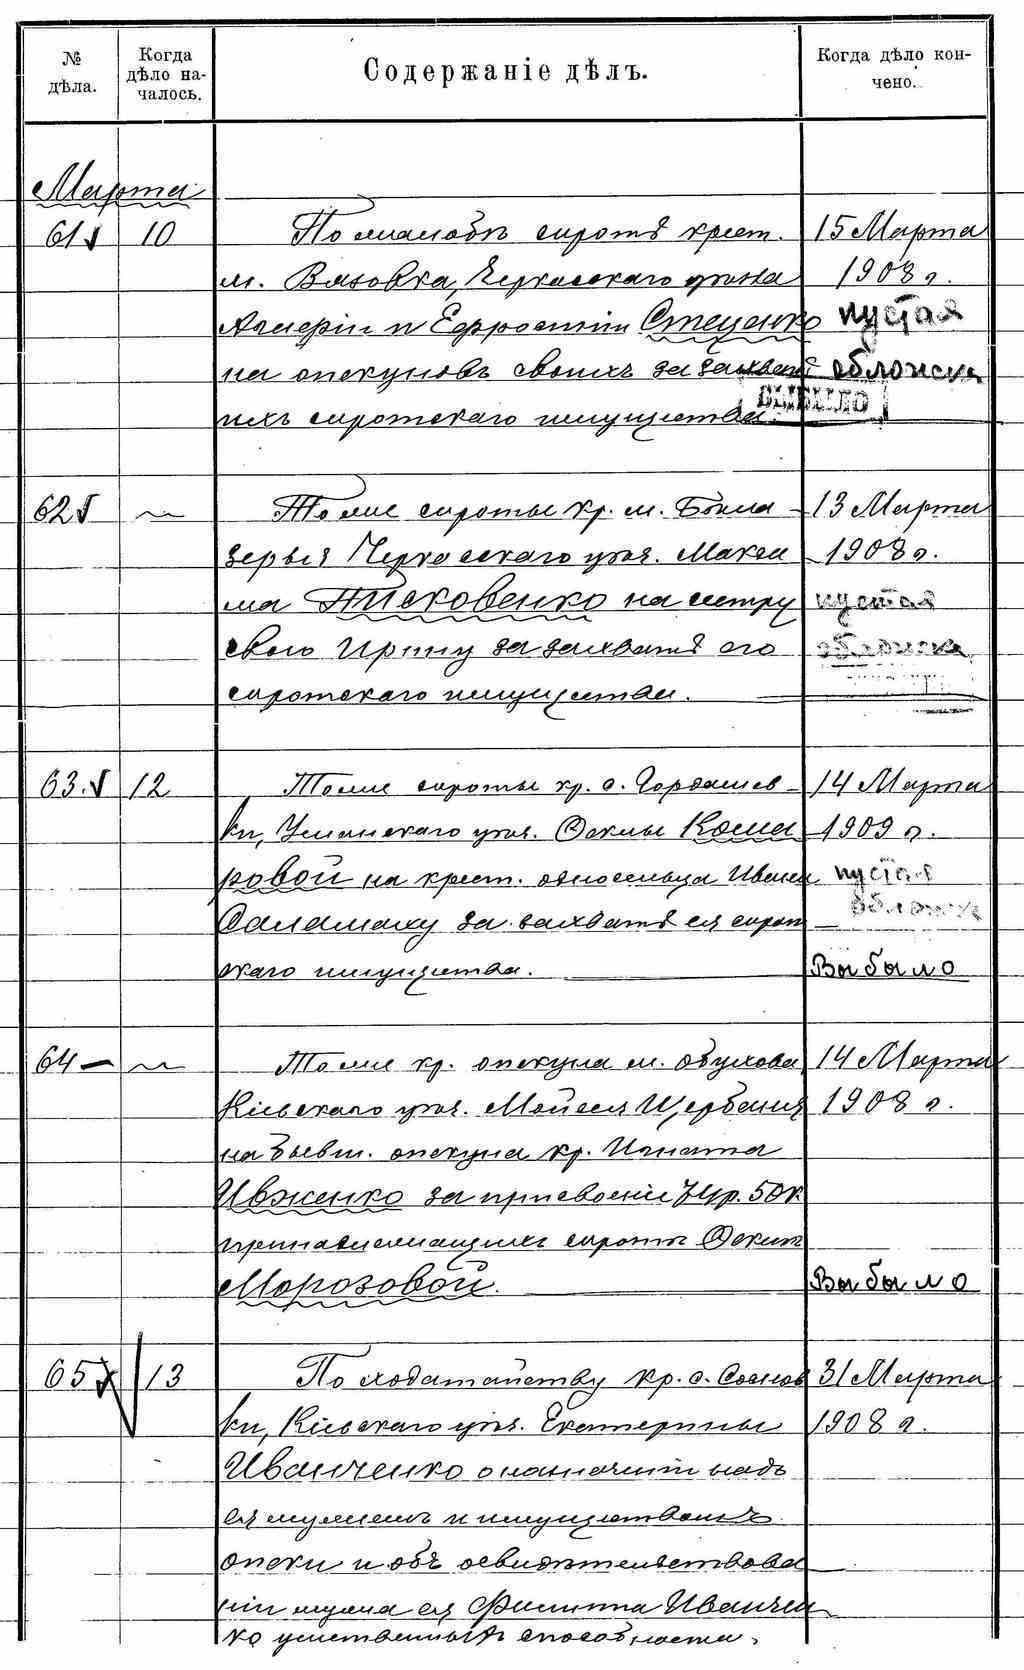 № дѣла.
Когда дѣло началось.
Содержаніе дѣлъ.
Когда дѣло кончено.
Марта
61 10 По жалобѣ сиротъ крест. 15 Марта
м. Вязовка, Черкасскаго уѣзда 1908 г.
и Ефросиніи Стеценко пустая
на опекуновъ своихъ за захватъ обложка
ихъ сиротскаго имущества ВЫБЫЛО
62 Тоже сироты кр. м. Бѣло- 13 Марта
зерья Черкасскаго уѣз. Макси 1908 г.
ма Писковенко на сестру пустая
свою Ирину за захватъ его обложка
сиротскаго имущества.
63. 12 Тоже сироты кр. с. Гордашев- 14 Марта
ки, Уманскаго уѣз. Феклы Кома 1909 г.
ровой на крест. односельца Ивана пустая
Саламаху за захватъ ея сирот- обложка
скаго имущества. Выбыло
64 Тоже кр. опекуна м. Обухова 14 Марта
Кіевскаго уѣз. Мойсея Щербаня 1908 г.
на бывш. опекуна кр. Игната
Ивженко за присвоеніе р. 50 к
принадлежащихъ сиротѣ
Морозовой. Выбыло
65 13 По ходатайству кр. с. Соснов 31 Марта
ки, Кіевскаго уѣз. Екатерины 1908 г.
Иванченко о назначеніи надъ
ея мужемъ и имуществомъ
опеки и объ освидѣтельствова
ніи мужа ея Филиппа Иванчен
ко умственныхъ способностей.